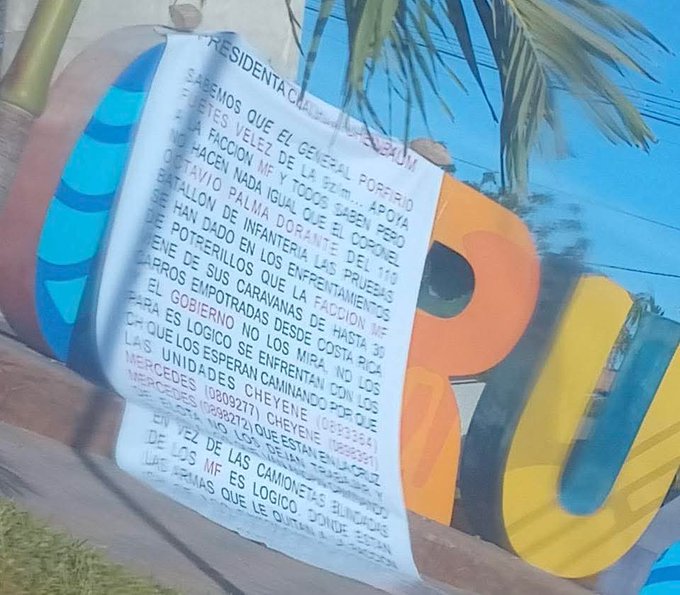 PRESIDENTA
SABEMOS QUE EL GENERAL PORFIRIO
FUETES VELEZ DE LA 9z!m... APOYA
LA FACCION MF Y TODOS SABEN PERO
NO HACEN NADA IGUAL QUE EL CORONEL
OCTAVIO PALMA DORANTE DEL 110
BATALLON DE INFANTERIA LAS PRUEBAS
SE HAN DADO EN LOS ENFRENTAMIENTOS
DE POTRERILLOS QUE LA FACCION MF
VIENE DE SUS CARAVANAS DE HASTA 30
CARROS EMPOTRADAS DESDE COSTA RICA
EL GOBIERNO NO LOS MIRA, NO LOS
PARA ES LOGICO SE ENFRENTAN CON LOS
CH QUE LOS ESPERAN CAMINANDO POR QUE
LAS UNIDADES CHEYENE
MERCEDES (0809277) CHEYENE
MERCEDES (0898272) QUE ESTAN EN LA CRUZ
DE ELOTA NO LOS DEJAN TRABAJAR Y
EN VEZ DE LAS CAMIONETAS BLINDADAS
DE LOS MF ES LOGICO DONDE ESTAN
LAS ARMAS QUE LE QUITAN A LA
RU